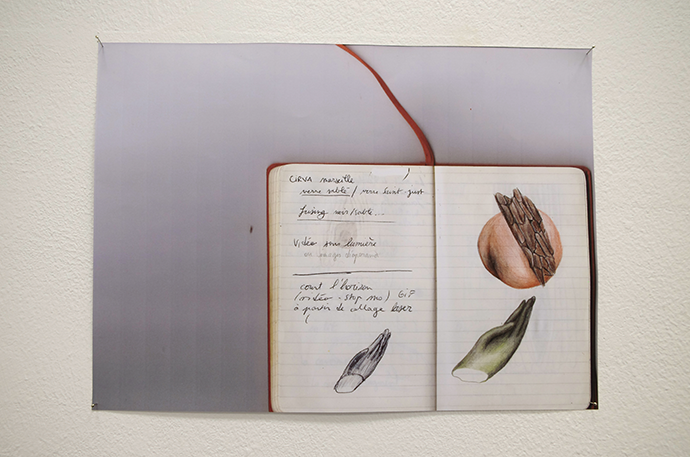 CIRVA marseille
verre sablé / verre
fusing noir/sable...
Vidéo sans lumière
court l'horison
(vidéo - stop mo) GIF
à partir de collage laser